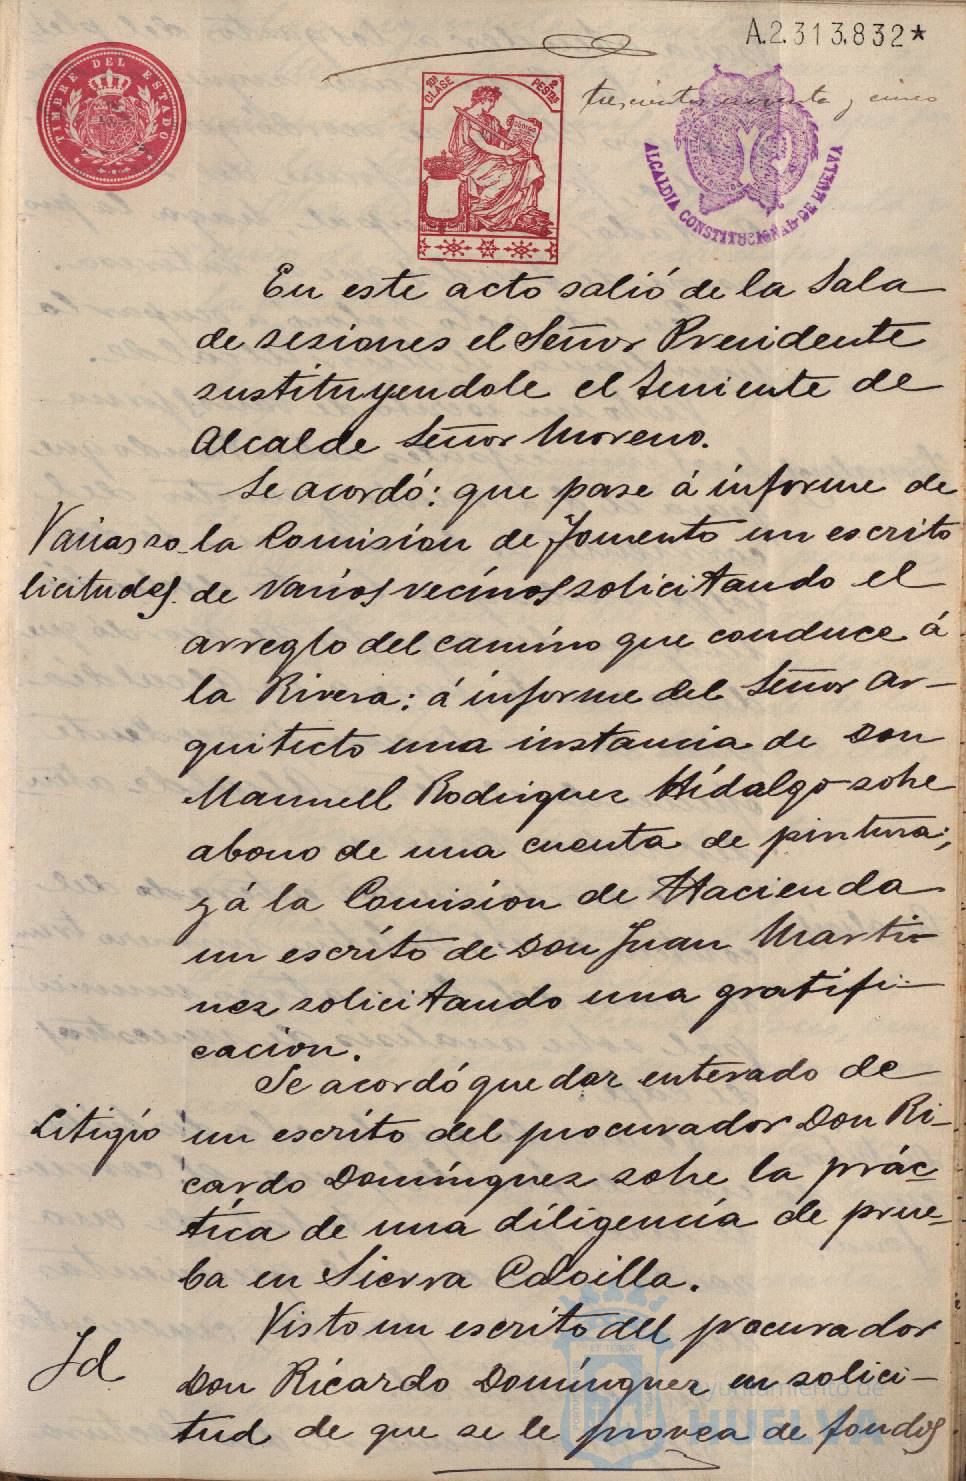 A.2.313.832*
TIMBRE DEL ESTADO
10ª CLASE
2 PESTAS
trescientos noventa y cinco
ALCALDIA CONSTITUCIONAL DE HUELVA
En este acto salió de la Sala
de sesiones el Señor Presidente
sustituyendole el Teniente de
Alcalde Señor Moreno.
Se acordó: que pase á informe de
Varias so-
licitudes.
la Comisión de Fomento un escrito
de varios vecinos solicitando el
arreglo del camino que conduce á
la Rivera; á informe del Señor Ar-
quitecto una instancia de Don
Manuel Rodriguez Hidalgo sobre
abono de una cuenta de pintura;
y á la Comisión de Hacienda
un escrito de Don Juan Marti-
nez solicitando una gratifi-
cacion.
Se acordó quedar enterado de
Litigio
un escrito del procurador Don Ri-
cardo Domínguez sobre la prác-
tica de una diligencia de prue-
ba en Sierra Caloilla.
Visto un escrito del procurador
Id
Don Ricardo Domínguez en solici-
tud de que se le provea de fondos
Ayuntamiento de
HUELVA